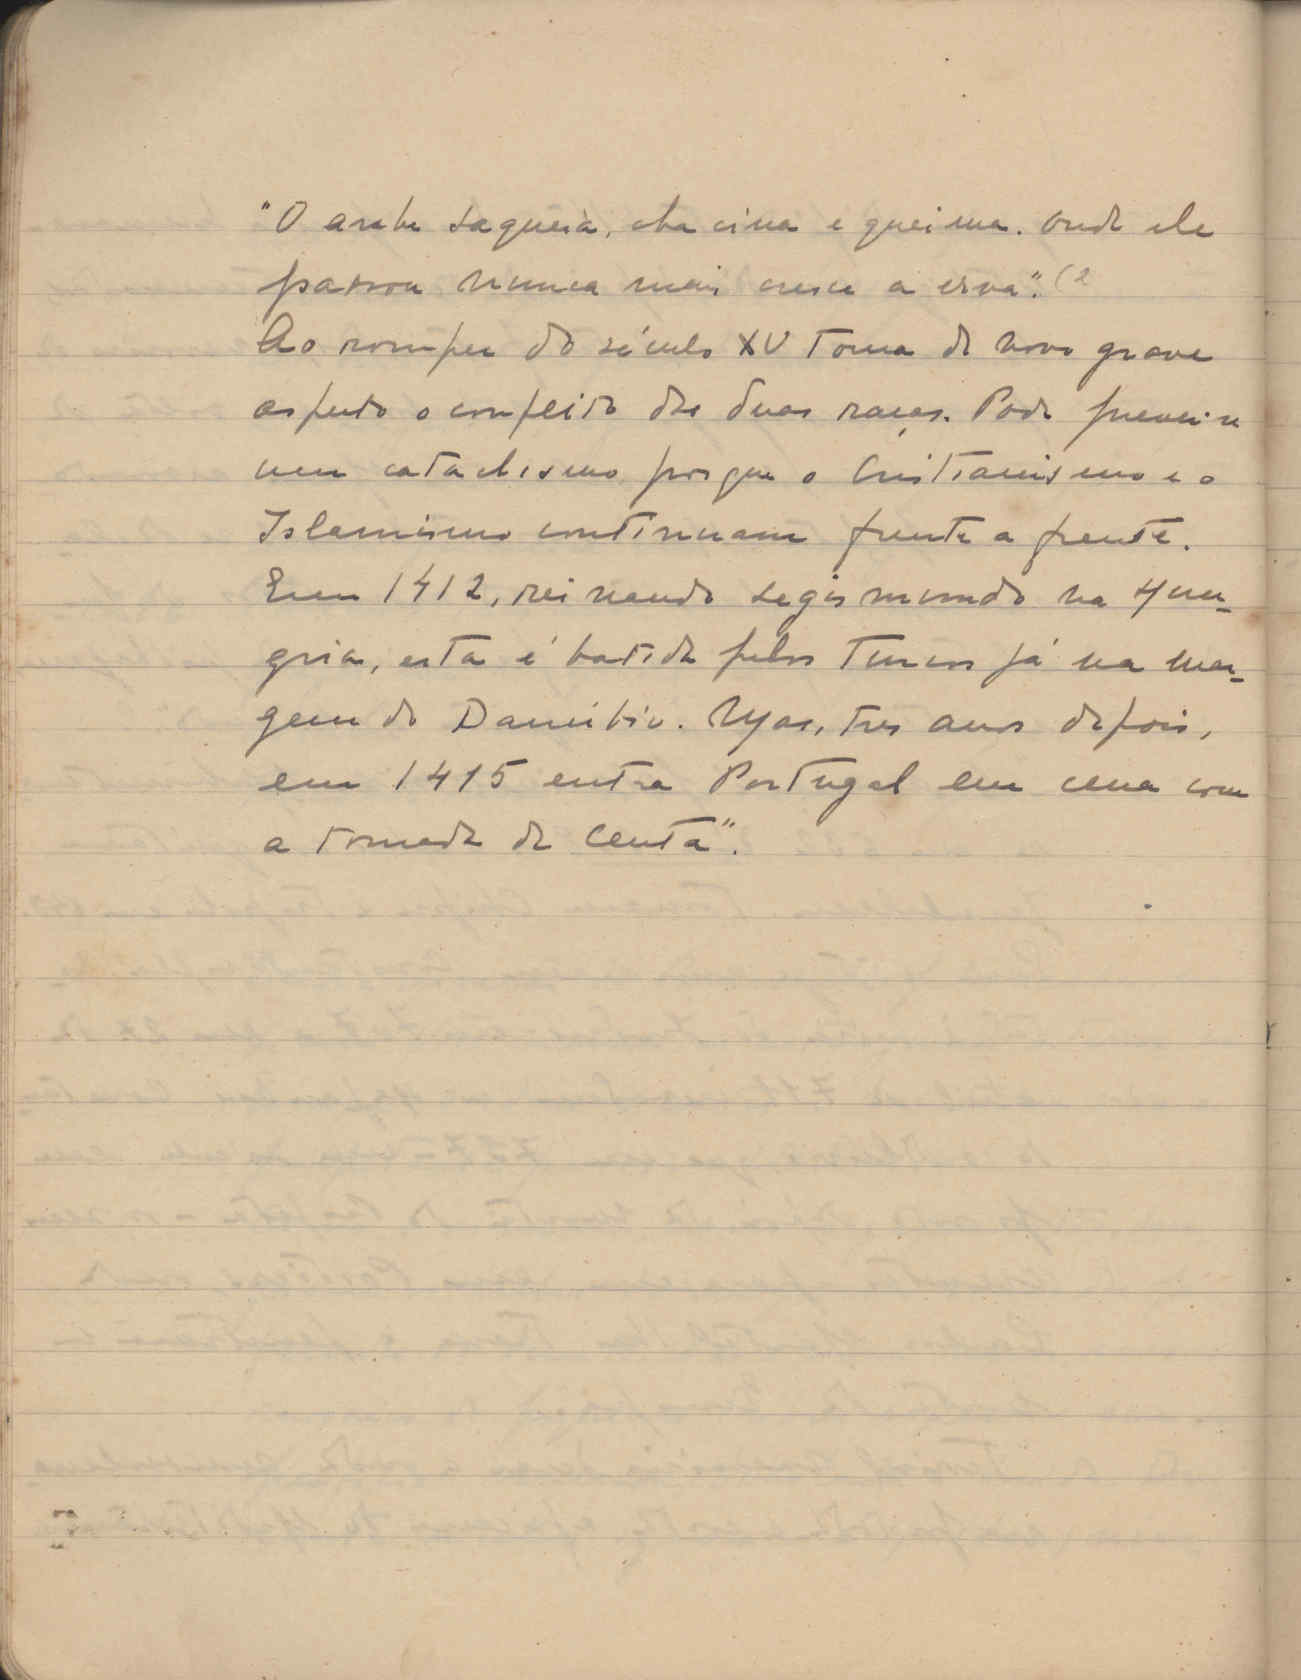 "O arabe saqueia, chacina e queima. Onde ele
passou nunca mais cresce a erva". (2
Ao romper do século XV toma de novo grave
aspecto o conflito das duas raças. Pode prever-se
um cataclismo porque o Cristianismo e o
Islamismo continuam frente a frente.
Em 1412, reinando Segismundo na Hun-
gria, esta é batida pelos Turcos já na mar-
gem do Danúbio. Mas, tres anos depois,
em 1415 entra Portugal em cena com
a tomada de Ceuta".